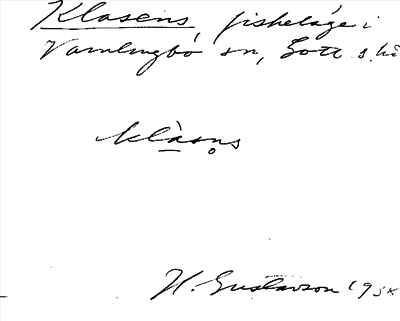 Klasens, fiskeläge i
Vamlingbo sn, Gotl. s. hd
klàsns
H. Gustavson 195